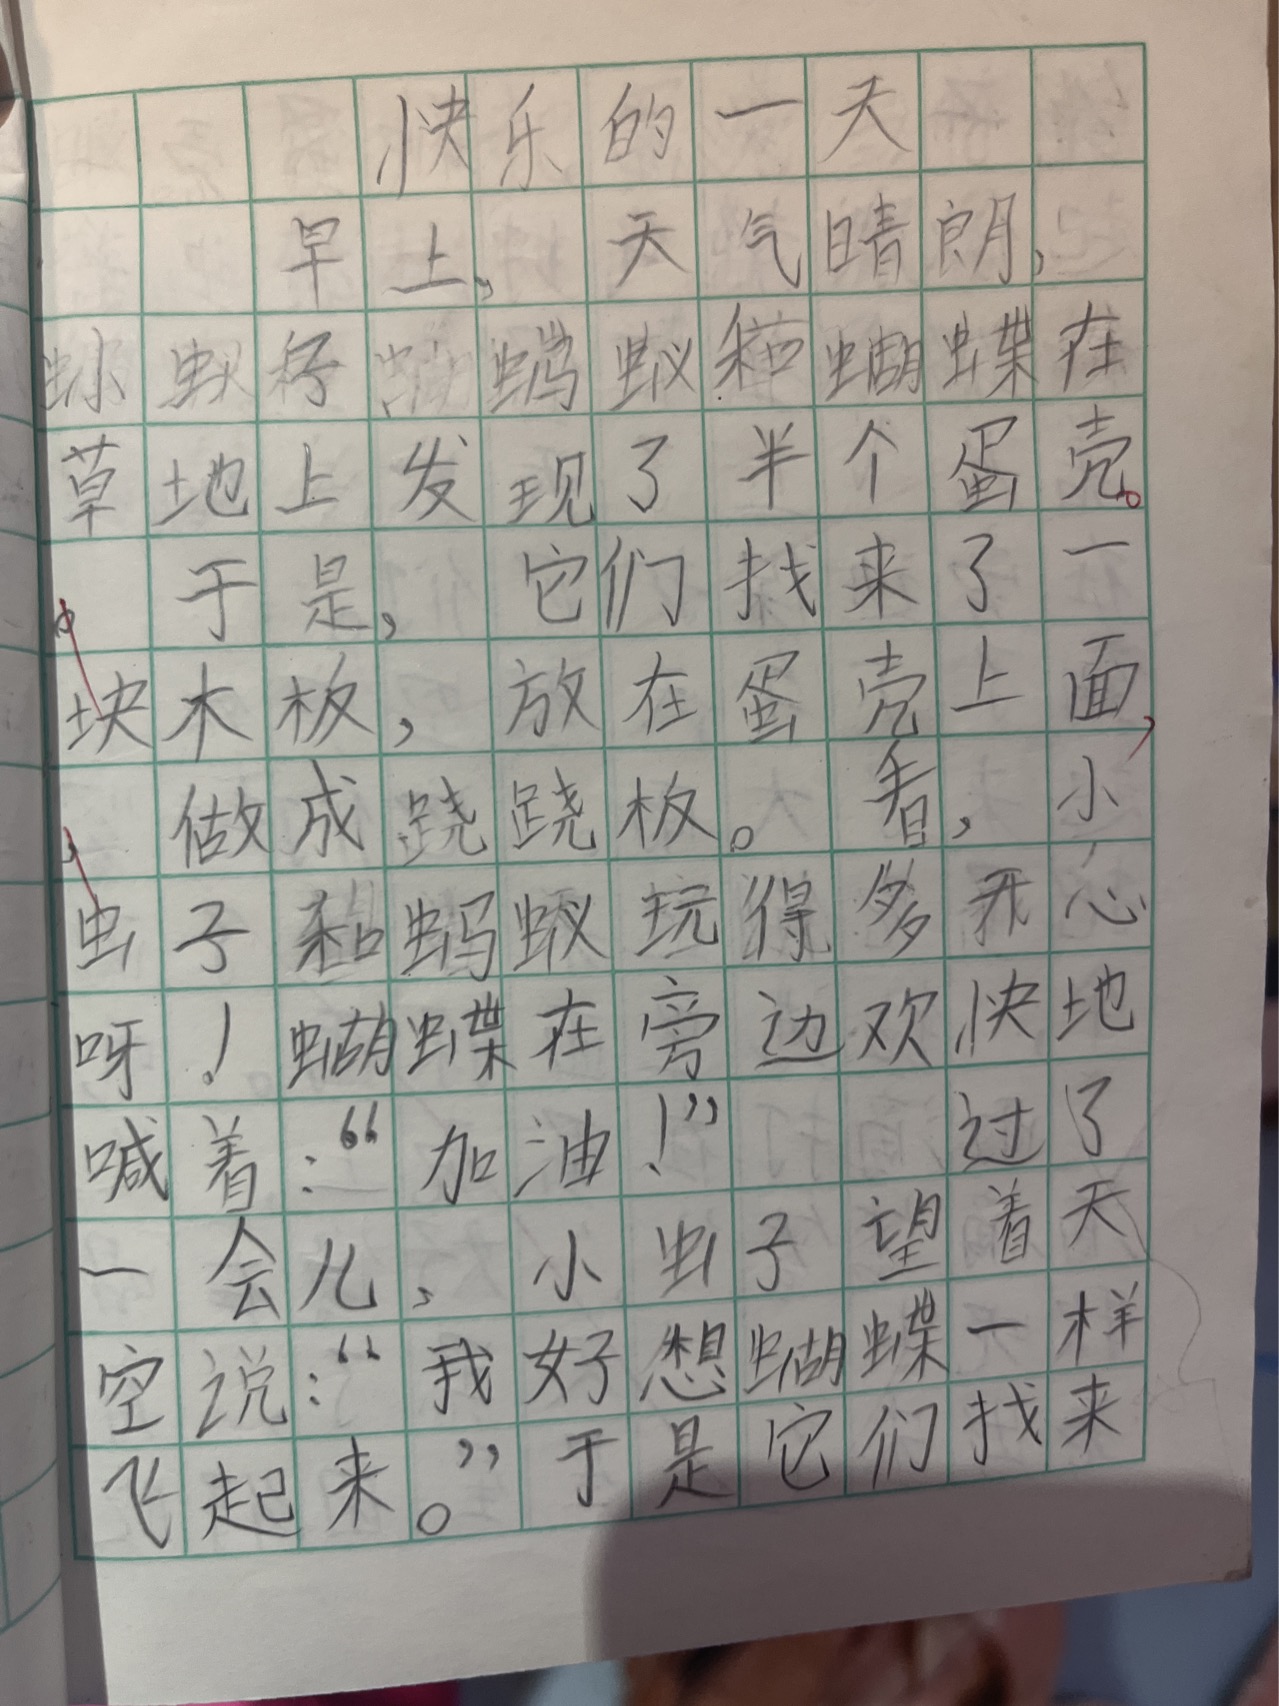 快乐的一天
早上，天气晴朗，
蚂蚁和蝴蝶在
草地上发现了半个蛋壳。
于是，它们找来了一
块木板，放在蛋壳上面，
做成跷跷板。看，小
虫子和蚂蚁玩得多开心
呀！蝴蝶在旁边欢快地
喊着：“加油！”过了
一会儿，小虫子望着天
空说：“我好想蝴蝶一样
飞起来。”于是它们找来